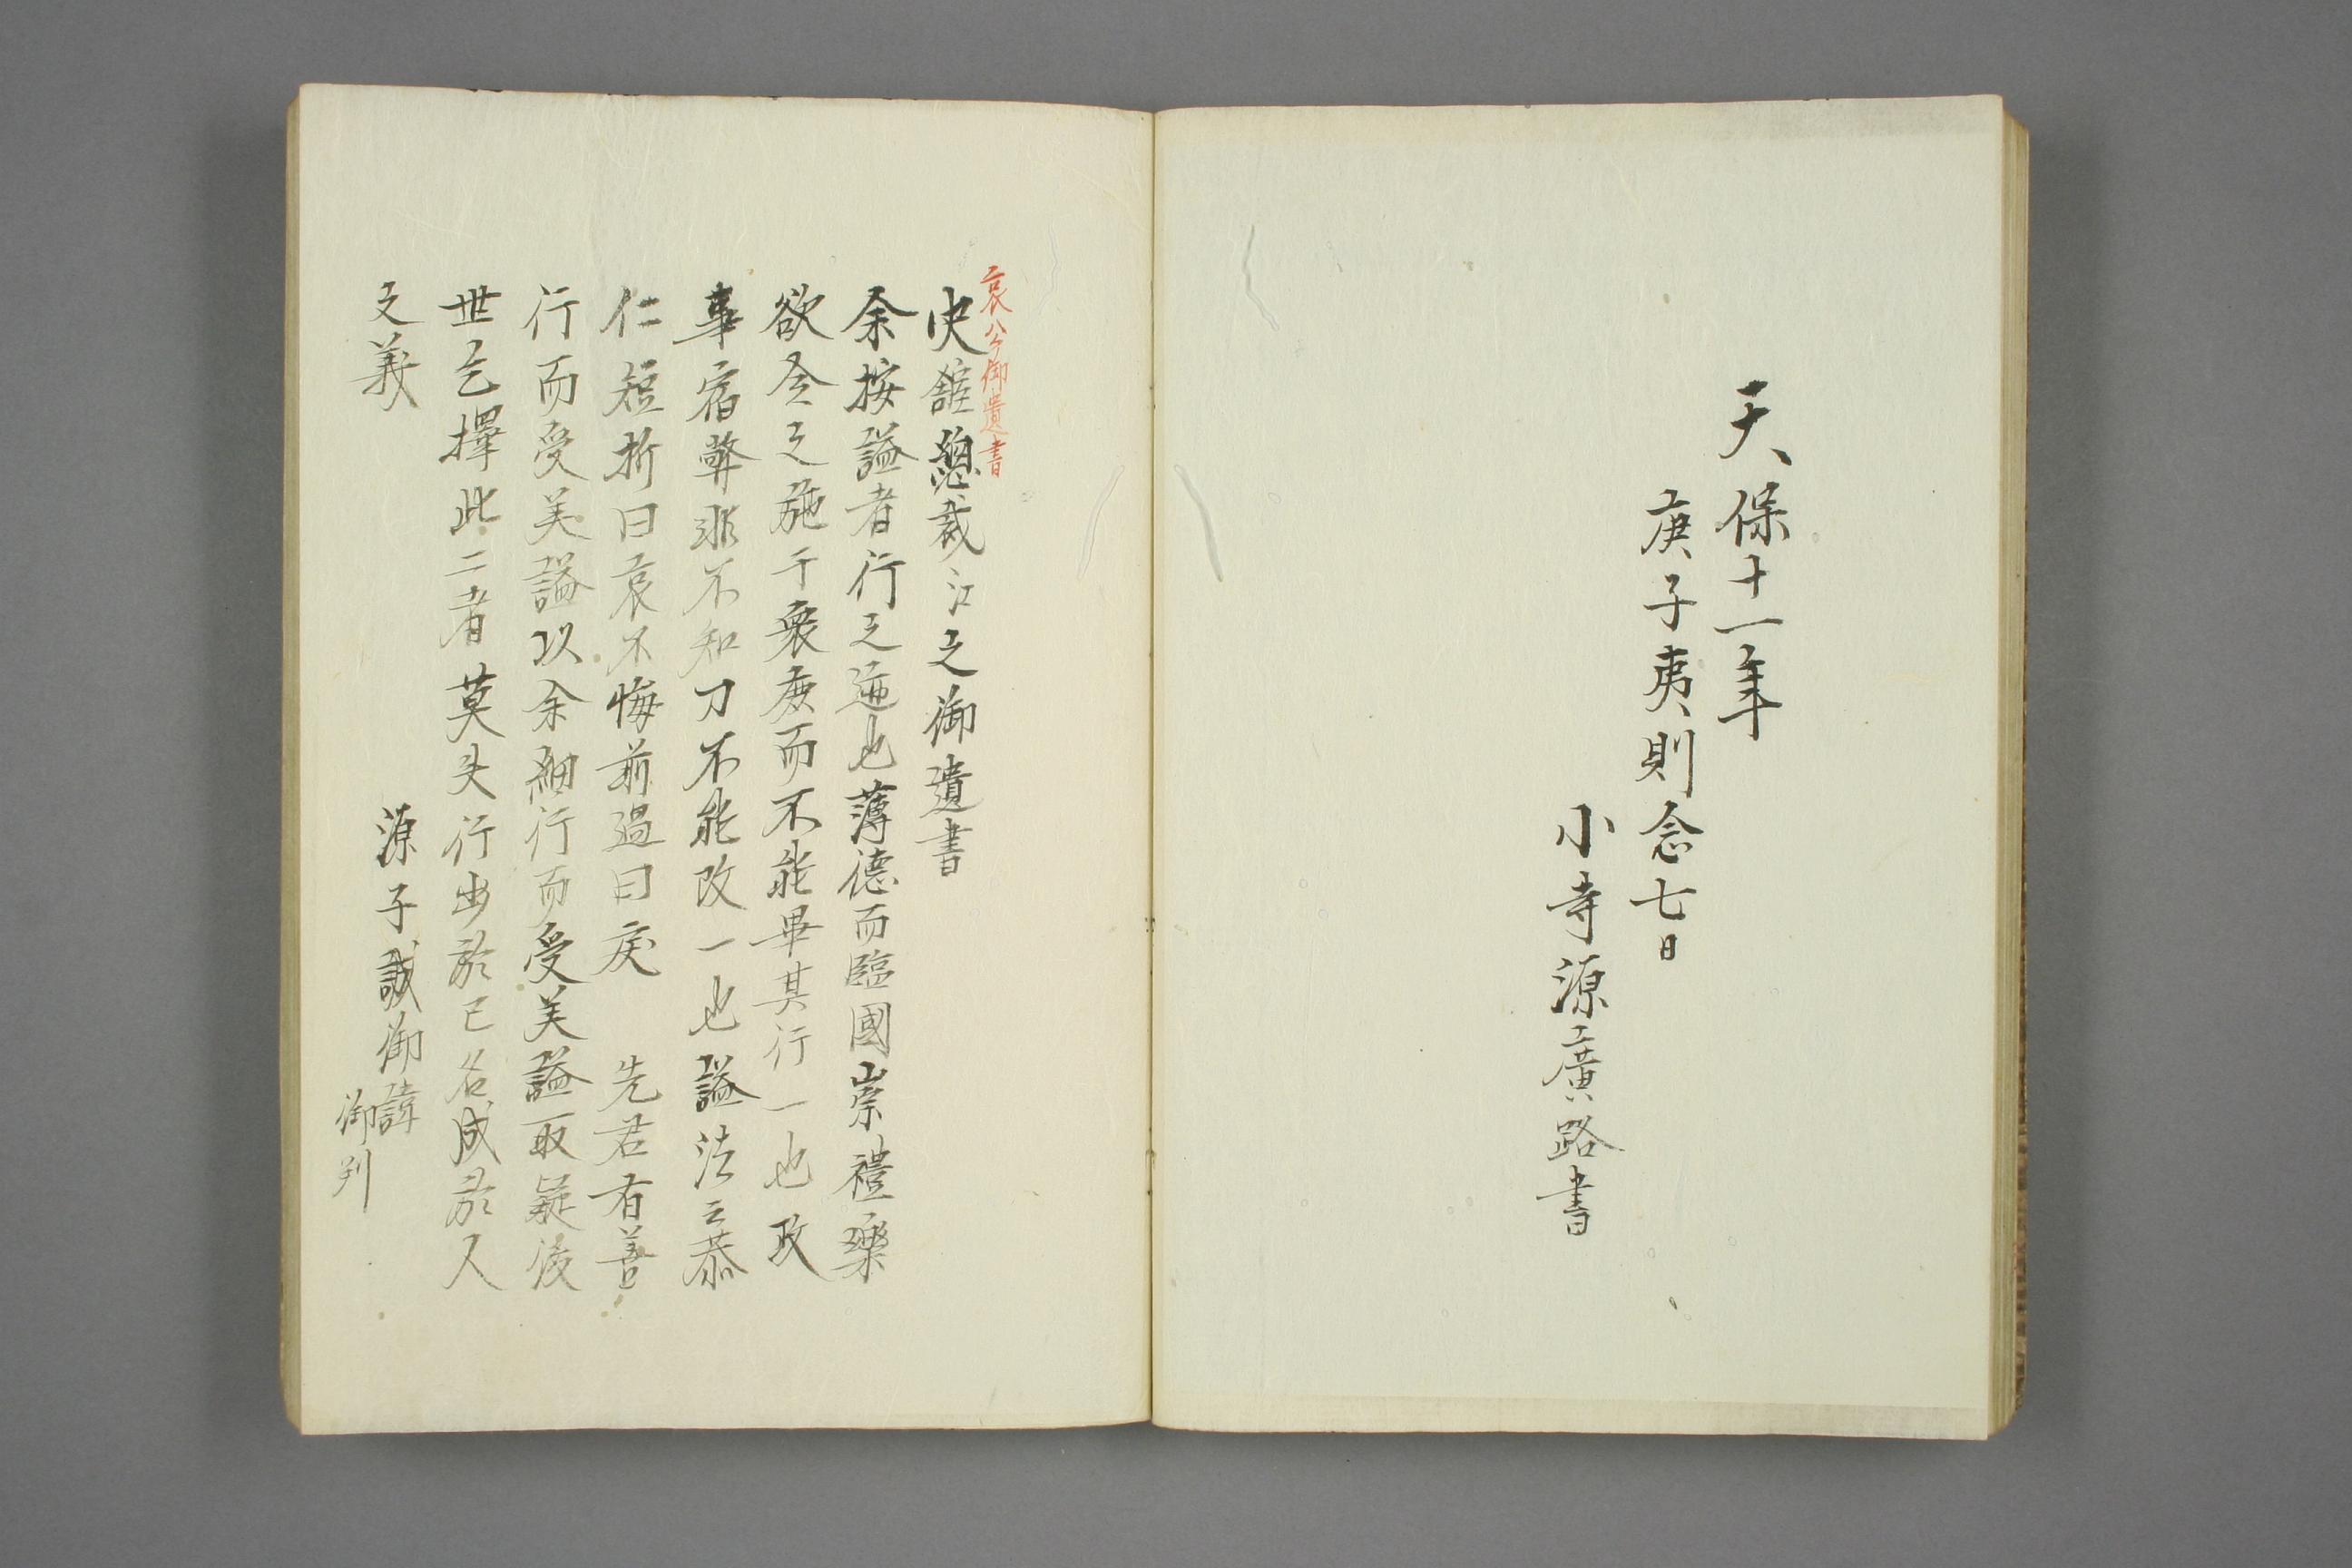 天保十一年
庚子夷則念七日
小寺源廣路書
哀公御遺書
史舘總裁江之御遺書
余按謚者行之迹也薄德而臨國崇禮樂
欲令之施于衆庶而不能畢其行一也政
事宿弊非不知刀不能改一也謚法云恭
仁短折曰哀不悔前過曰戾　先君有善
行而受美謚以余細行而受美謚取疑後
世乞擇此二者莫失行出於己名成於人
之義
源子誠御諱
御判